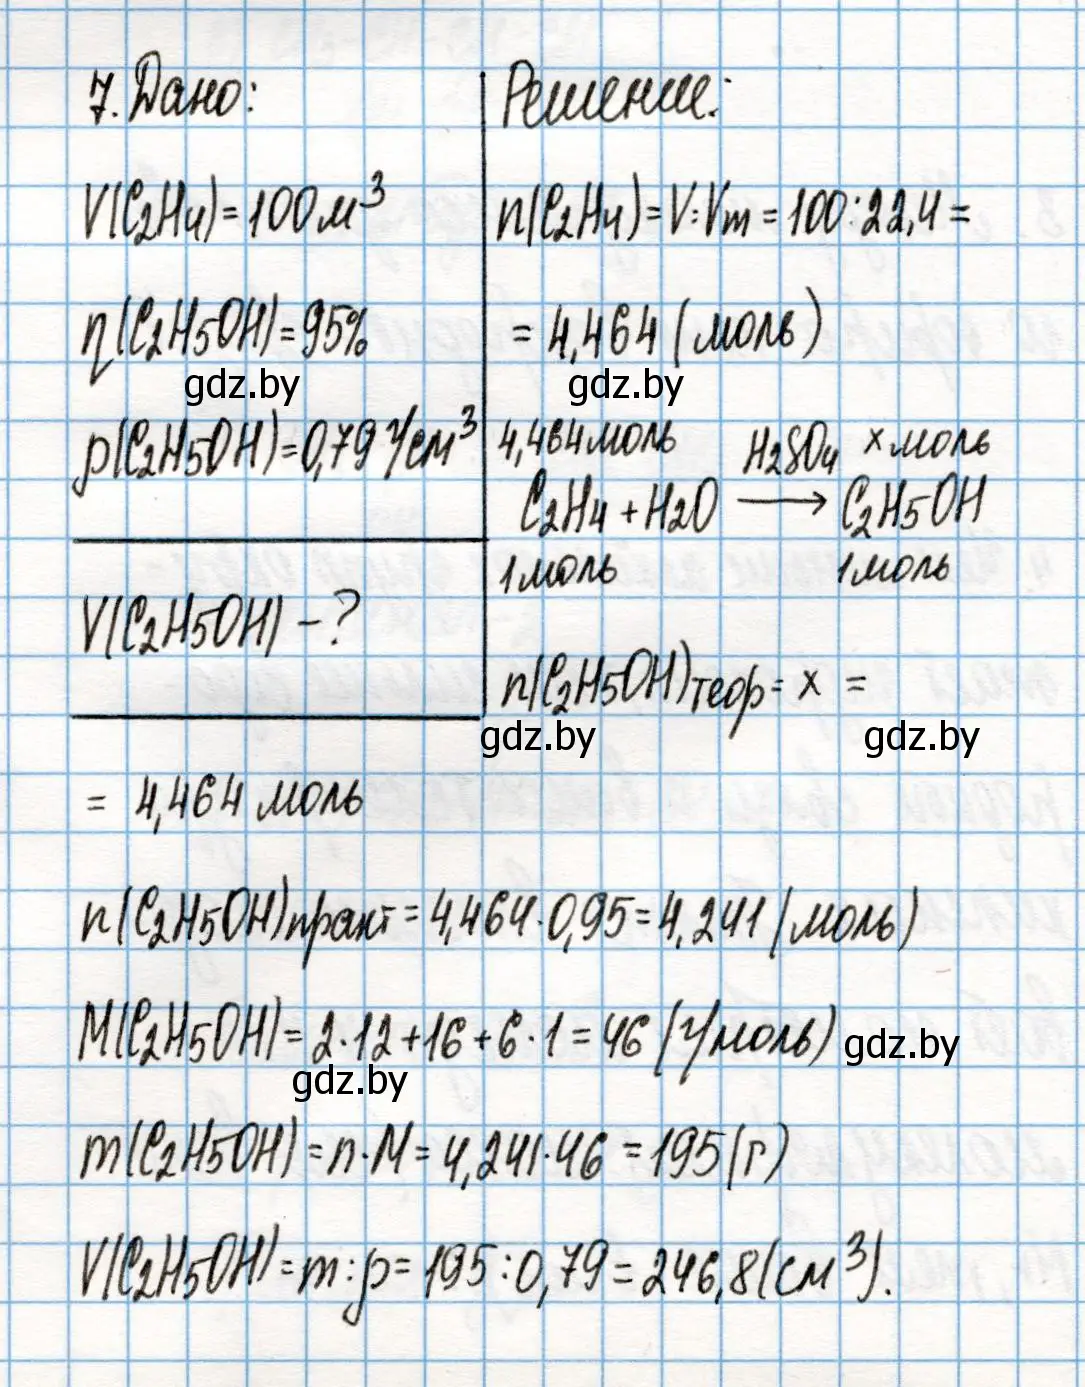 7. Дано:
V(C2H4) = 100 м³
η(C2H5OH) = 95%
gdz.by
ρ(C2H5OH) = 0,79 г/см³
V(C2H5OH) - ?
Решение:
n(C2H4) = V : Vm = 100 : 22,4 =
= 4,464 (моль)
gdz.by
4,464 моль H2SO4 x моль
C2H4 + H2O → C2H5OH
1 моль 1 моль
n(C2H5OH)теор = x =
gdz.by gdz.by
= 4,464 моль
n(C2H5OH)практ = 4,464 · 0,95 = 4,241 (моль)
M(C2H5OH) = 2·12 + 16 + 6·1 = 46 (г/моль)
gdz.by
gdz.by
m(C2H5OH) = n·M = 4,241·46 = 195 (г)
V(C2H5OH) = m : ρ = 195 : 0,79 = 246,8 (см³).